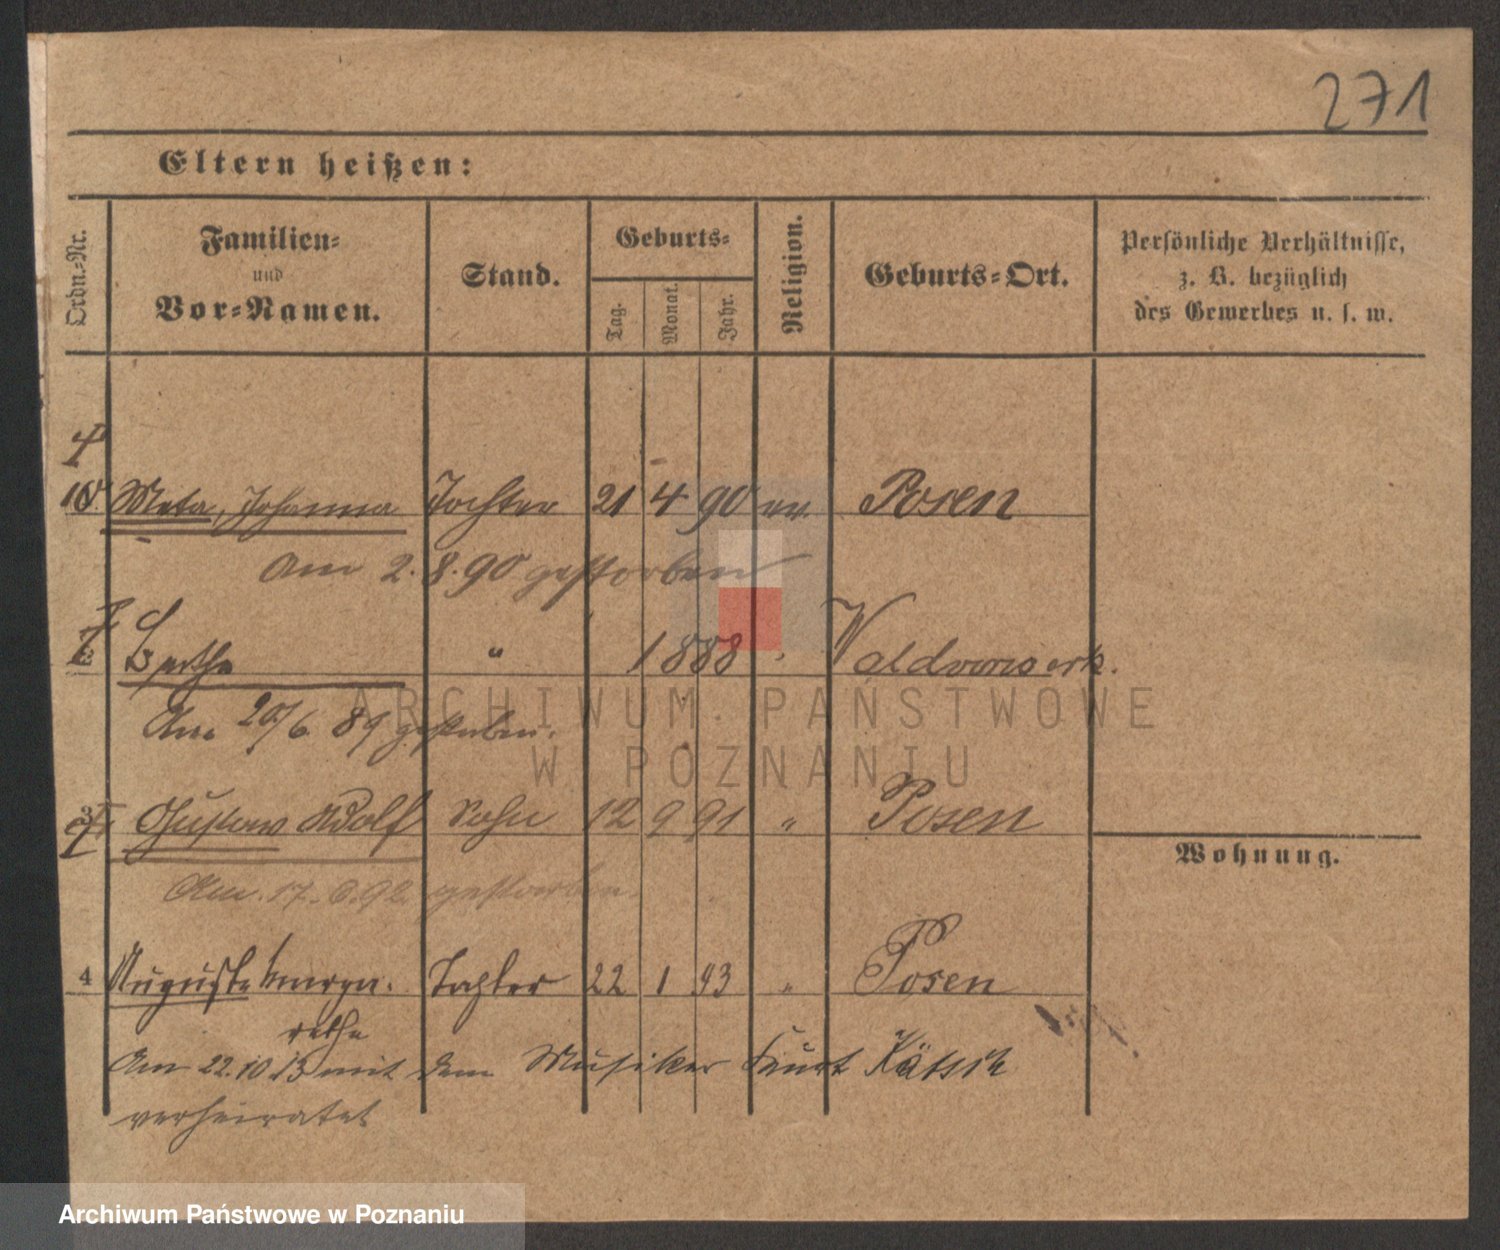 271
Eltern heißen:
Ordn.-Nr.
Familien-
und
Vor-Namen.
Stand.
Geburts-
Tag.
Monat.
Jahr.
Religion.
Geburts-Ort.
Persönliche Verhältnisse,
z. B. bezüglich
des Gewerbes u. s. w.
Meta, Johanna Tochter 21 4 90 ev. Posen
Am 2.8.90 gestorben
Bertha " 1888 Waldvorwerk.
Am 20/6 89 gestorben.
Gustav Adolf Sohn 12 9 91 " Posen
Wohnung.
Am 17.6.92 gestorben.
4 Auguste Tochter 22 1 93 " Posen
rethe
Am 22.10.13 mit dem Musiker Kurt
verheiratet
ARCHIWUM PAŃSTWOWE
W POZNANIU
Archiwum Państwowe w Poznaniu